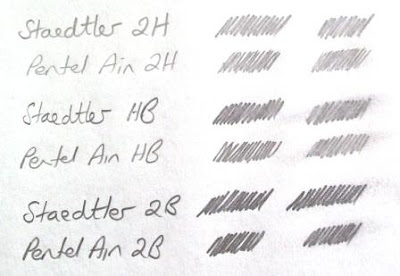 Staedtler 2H
Pentel Ain 2H
Staedtler HB
Pentel Ain HB
Staedtler 2B
Pentel Ain 2B